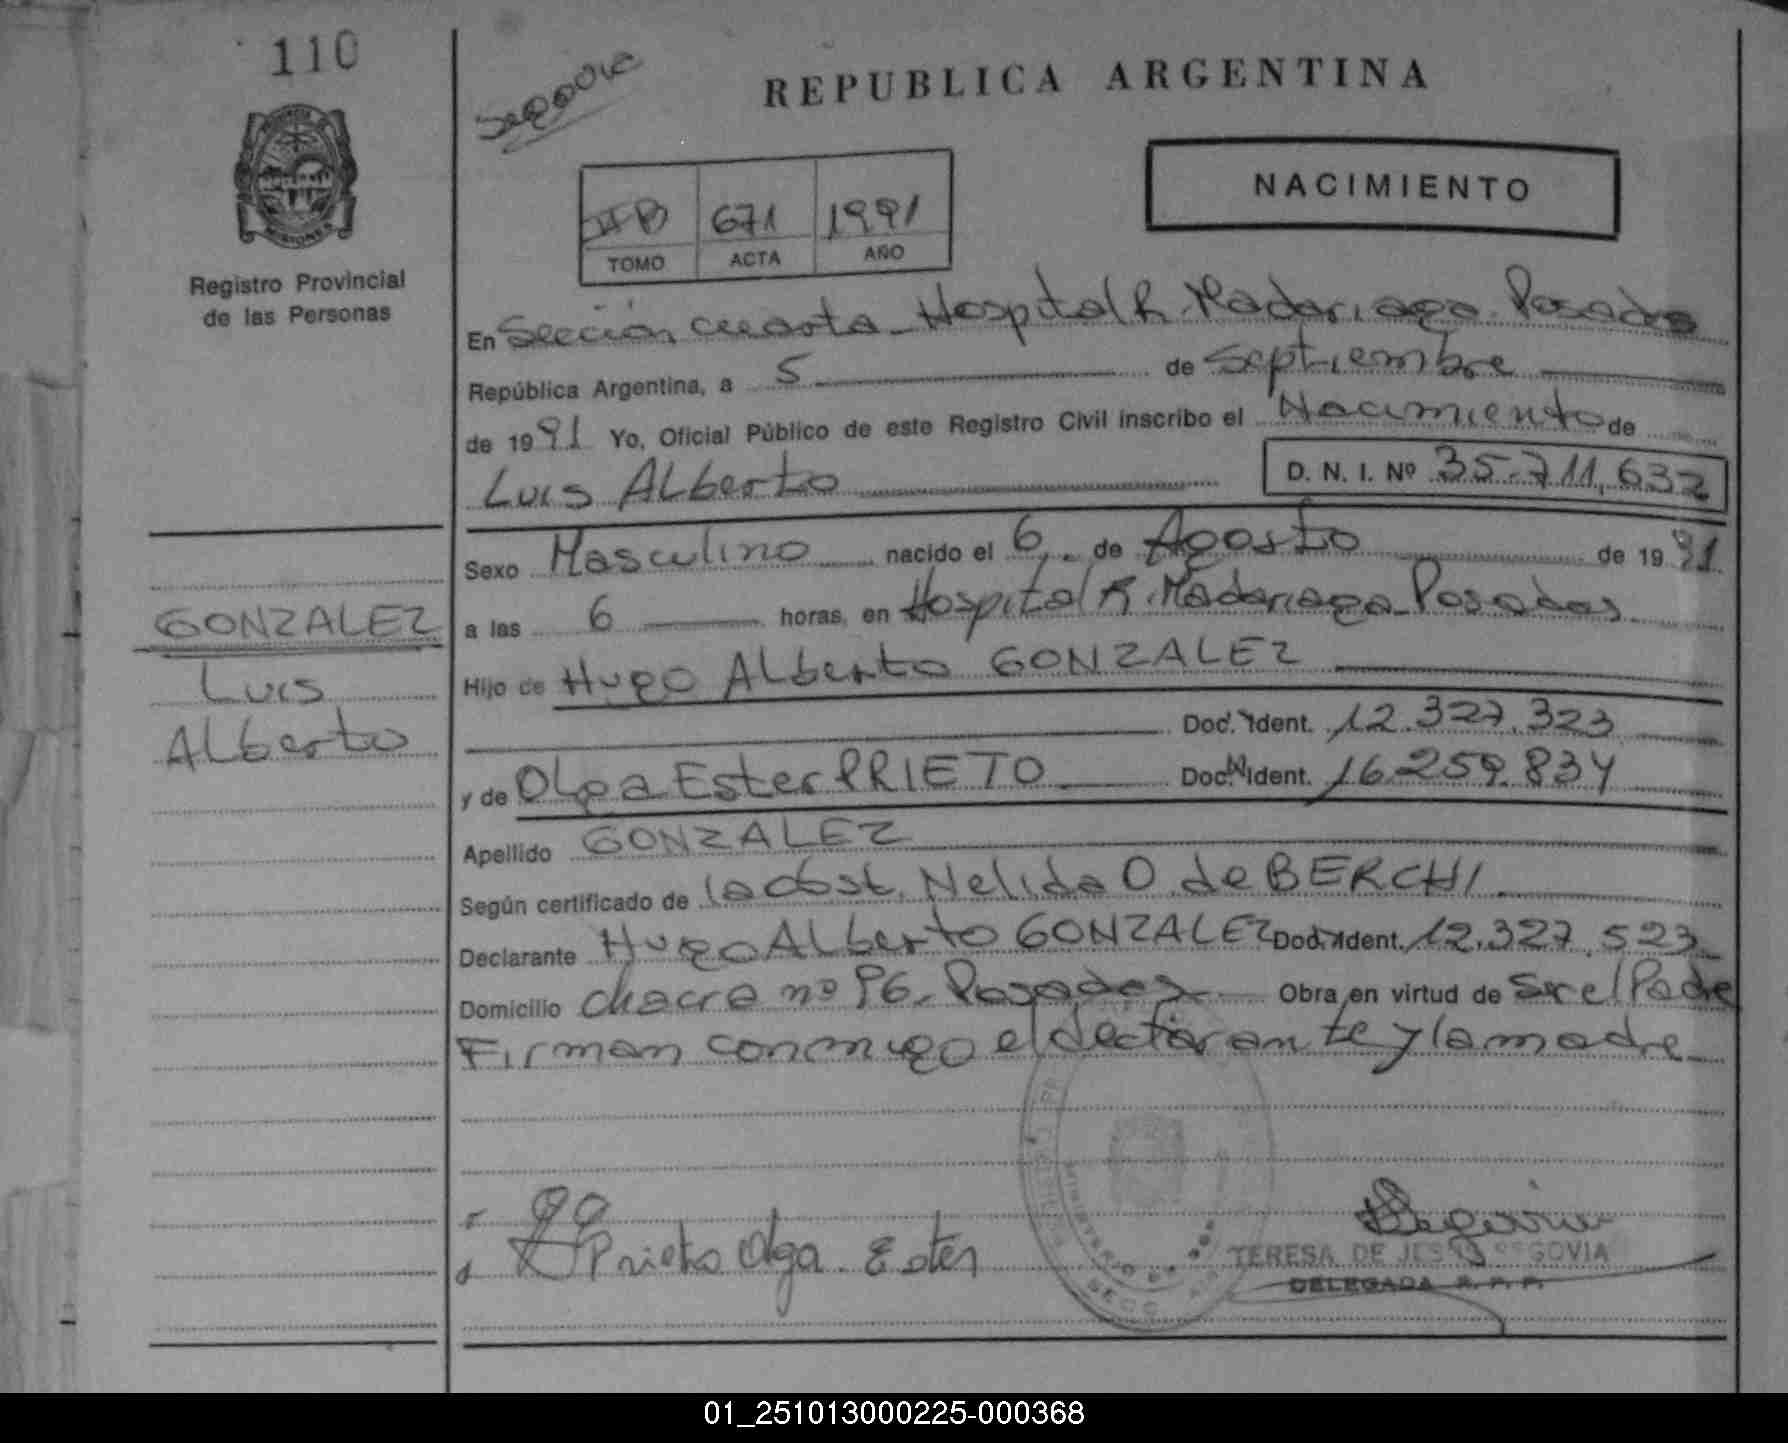 110
PROVINCIA DE
MISIONES
Registro Provincial
de las Personas
GONZALEZ
Luis
Alberto
REPUBLICA ARGENTINA
NACIMIENTO
II B 671 1991
TOMO ACTA AÑO
En Sección cuarta - Hospital R. Madariaga. Posadas
República Argentina, a 5 de Septiembre
de 1991 Yo, Oficial Público de este Registro Civil inscribo el Nacimiento de
Luis Alberto D. N. I. Nº 35.711.632
Sexo Masculino nacido el 6 de Agosto de 1991
a las 6 horas, en Hospital R. Madariaga - Posadas
Hijo de Hugo Alberto GONZALEZ
Doc. Ident. 12.327.323
y de Olga Ester PRIETO Doc. Ident. 16.259.834
Apellido GONZALEZ
Según certificado de la obst. Nelida O de BERCHI
Declarante Hugo Alberto GONZALEZ Doc. Ident. 12.327.523
Domicilio chacra nº 96 - Posadas Obra en virtud de Ser el Padre
Firman conmigo el declarante y la madre
Prieto Olga. Ester
TERESA DE JESUS SEGOVIA
DELEGADA R. P. P.
01_251013000225-000368